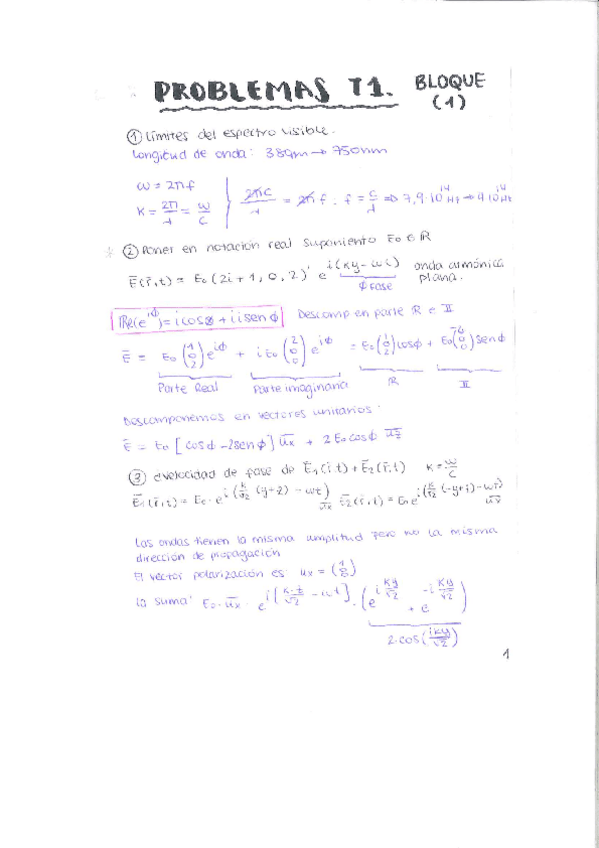 PROBLEMAS T1. BLOQUE (1)
① Límites del espectro visible.
Longitud de onda: 380nm → 750nm
ω = 2πf
K = 2π/λ = ω/c
2πc/λ = 2πf . f = c/λ ⇒ 7,9·10¹⁴ Hz → 4·10¹⁴ Hz
② Poner en notación real suponiento E₀ ∈ ℝ
Ē(r̄,t) = E₀(2i+1, 0, 2)' e^i(ky-ωt) onda armónica plana.
φ fase
Re(e^iφ) = i cosφ + i i senφ Descomp en parte ℝ e II
Ē = E₀ (1 0 2) e^iφ + i E₀ (2 0 0) e^iφ = E₀ (1 0 2) cosφ + E₀ senφ
Parte Real Parte imaginaria ℝ II
Descomponemos en vectores unitarios:
Ē = E₀ [cosφ - 2senφ] ūx + 2E₀ cosφ ūz
③ ¿velocidad de fase de Ē₁(r̄,t) + Ē₂(r̄,t) K = ω/c
Ē₁(r̄,t) = E₀·e^i(k/√2 (y+z) - ωt) ūx Ē₂(r̄,t) = E₀ e^i(k/√2 (-y+z) - ωt) ūx
Las ondas tienen la misma amplitud pero no la misma
dirección de propagación
El vector polarización es: ux = (1 0 0)
la suma: E₀·ūx · e^i(k·z/√2 - ωt) · (e^i ky/√2 + e^-i ky/√2)
2·cos(iky/√2)
1